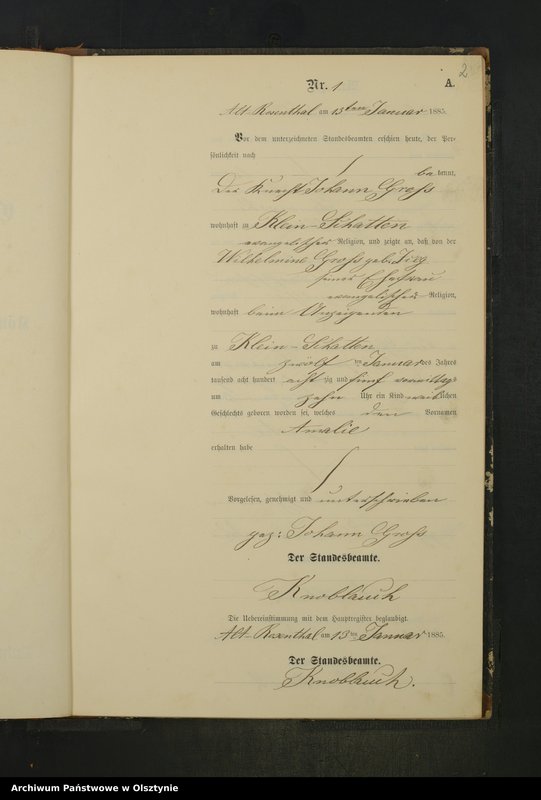 2
Nr. 1
A.
Alt Rosenthal am 13ten Januar 1885.
Vor dem unterzeichneten Standesbeamten erschien heute, der Per-
sönlichkeit nach
bekannt,
Der Johann Gross
wohnhaft zu Klein-Schatten
evangelischer Religion, und zeigte an, daß von der
Wilhelmine Gross geb.
seiner Ehefrau
evangelischer Religion,
wohnhaft beim Anzeigenden
zu Klein-Schatten
am zwölf ten Januar des Jahres
tausend acht hundert acht zig und fünf vormittags
um zehn Uhr ein Kind weiblichen
Geschlechts geboren worden sei, welches den Vornamen
Amalie
erhalten habe
Vorgelesen, genehmigt und unterschrieben
gez: Johann Gross
Der Standesbeamte.
Knoblauch
Die Uebereinstimmung mit dem Hauptregister beglaubigt.
Alt Rosenthal am 13ten Januar 1885.
Der Standesbeamte.
Knoblauch.
Archiwum Państwowe w Olsztynie